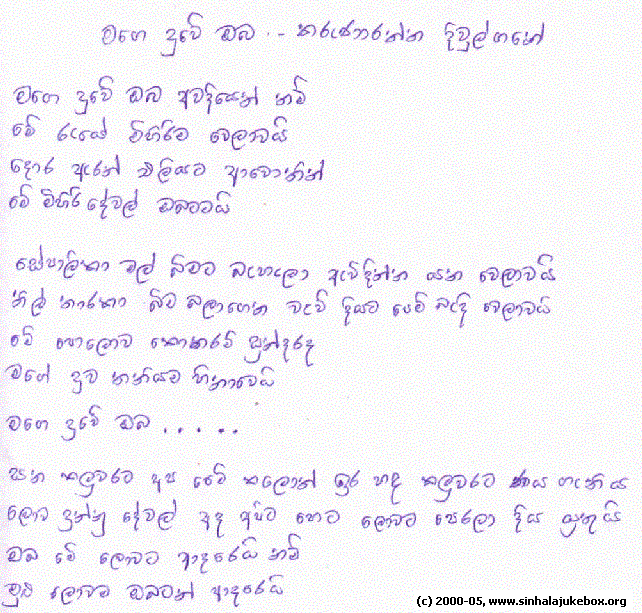 මගෙ දුවේ ඔබ - කරුණාරත්න දිවුල්ගනේ
මගෙ දුවේ ඔබ අවදියෙන් නම්
මේ රැයේ මිහිරිම වෙලාවයි
දොර ඇරන් එලියට ආවොතින්
මේ මිහිරි දේවල් ඔබටයි
සේපාලිකා මල් බිමට බැහැලා ඇවිදින්න යන වෙලාවයි
නිල් තාරකා බිම බලාගෙන වැව් දියට පෙම් බැඳි වෙලාවයි
මේ පොලොව කොතරම් සුන්දරද
මගේ දුව තනියම හිනාවෙයි
මගෙ දුවේ ඔබ . . . . .
ඝන කලුවරට අප පෙම් කලොත් ඉර හඳ කලුවරට ණය ගැතිය
ලොව දුන්නු දේවල් අද අපිට හෙට ලොවට පෙරලා දිය යුතුයි
ඔබ මේ ලොවට ආදරෙයි නම්
මුළු ලොවම ඔබටත් ආදරෙයි
(c) 2000-05, www.sinhalajukebox.org